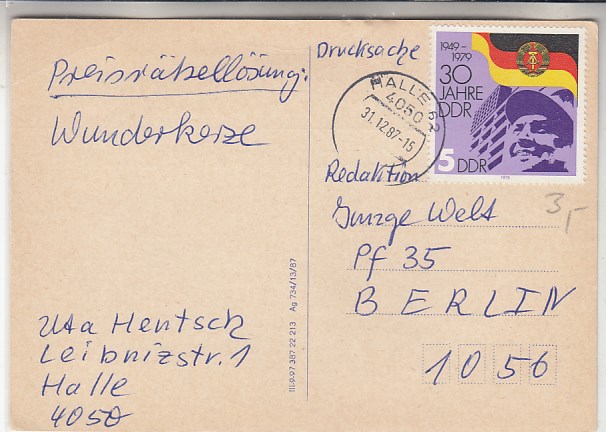 Preisrätsellösung:
Wunderkerze
Uta Hentsch
Leibnizstr. 1
Halle
4050
III-9-97 387 22 213 Ag 734/13/87
Drucksache
HALLE 52
4050
31.12.87-15
1949-
1979
30
JAHRE
DDR
5 DDR
1979
Redaktion
Junge Welt
Pf 35
BERLIN
1056
3,-